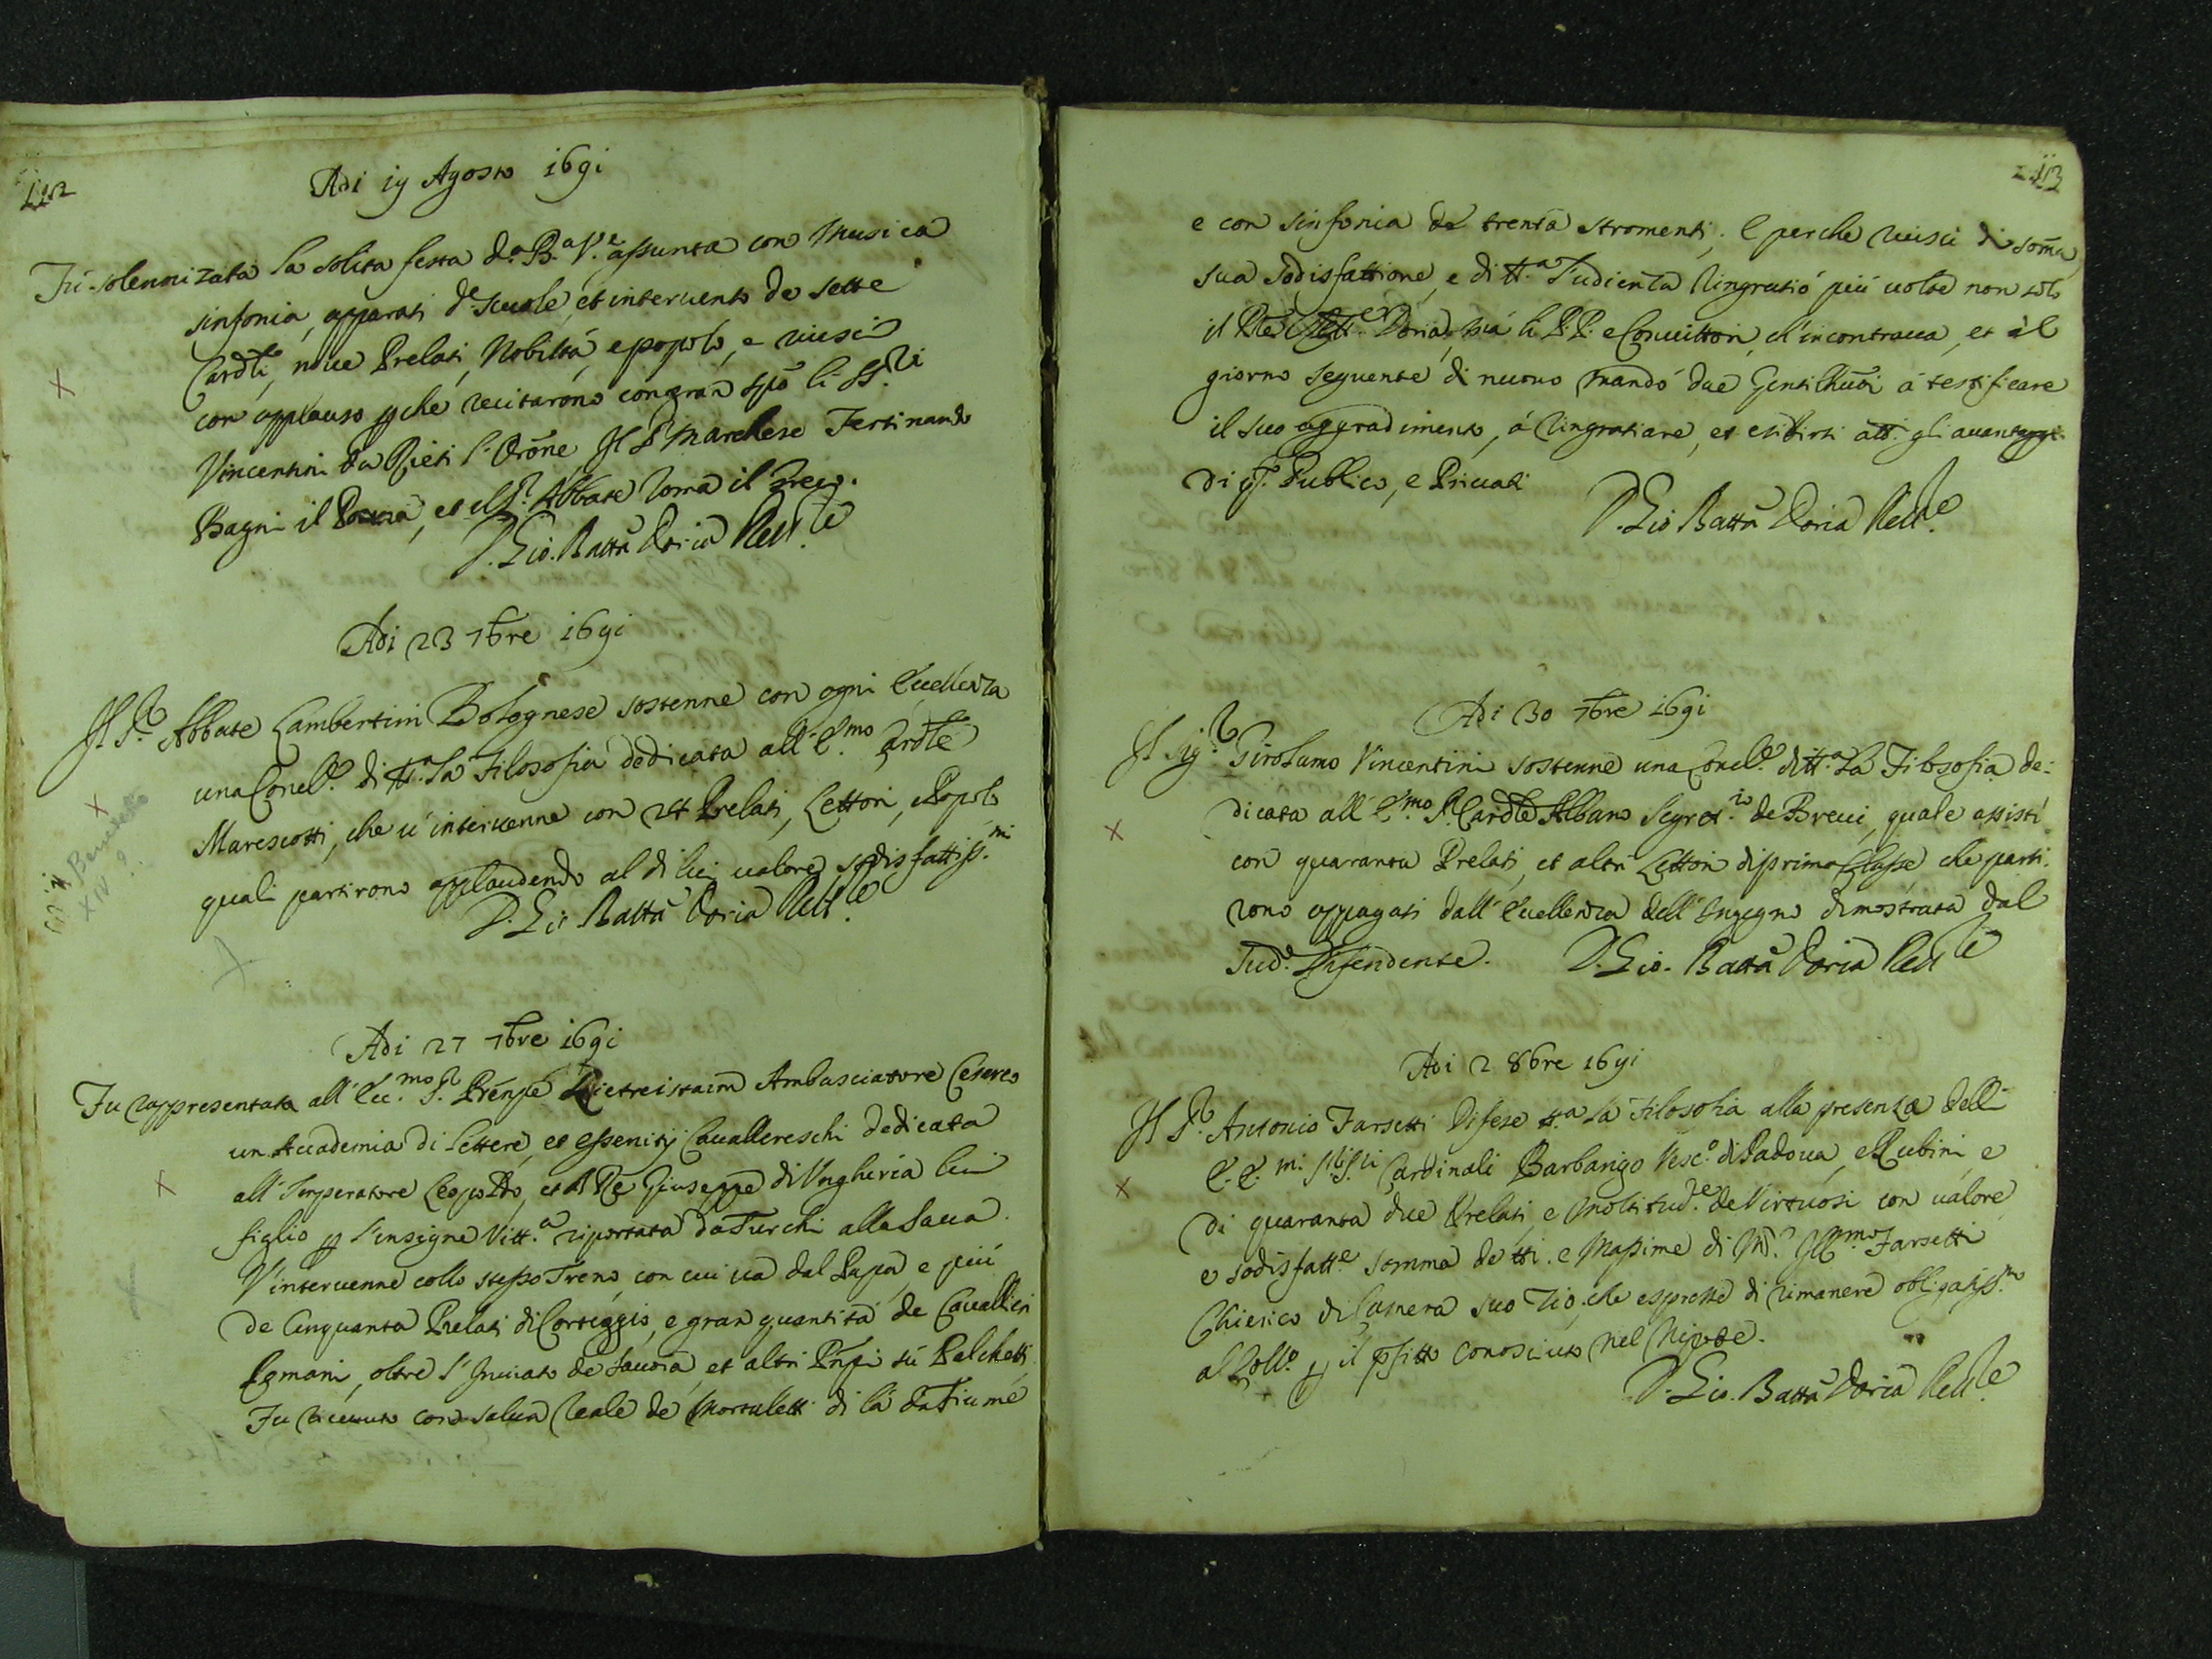 112
Adi 19 Agosto 1691
Fù solennizata la solita festa d.a B.a V.e assunta con musica
sinfonia, apparati d.e scuole, et intervento de sette
Cardli, nove Prelati, Nobiltà, e popolo, e riuscì
con applauso p che recitarono con gran spō li SS.ri
Vincentini da Rieti l'Orōne Il S.r Marchese Ferdinando
Bagni il Poema, et il S.r Abbate Roma il Greco.
D. Gio. Batta Doria Rett.e
Adi 23 7bre 1691
Il S.r Abbate Lambertini Bolognese sostenne con ogni Eccellenza
una Concl.e di tt.a la Filosofia dedicata all'E.mo Cardle
Marescotti, che v'intervenne con 24 Prelati, Lettori, e Popolo
quali partirono applaudendo al di lui valore sodisfattiss.mi
D. Gio Batta Doria Rett.e
Benedetto
XIV?
Adi 27 7bre 1691
Fu rappresentata all'Ecc.mo S.r Prenpe Ambasciatore Cesareo
un Accademia di Lettere, et essercitij Cavallereschi dedicata
all'Imperatore Leopoldo, et al Re Giuseppe di Ungheria lui
figlio p l'insigne Vitt.a riportata da Turchi alla Sava.
V'intervenne collo stesso Treno, con cui va dal Papa, e più
de Cinquanta Prelati di Corteggio, e gran quantità de Cavallieri
Romani, oltre l'Inviato de Savoia, et altri Prnpi sù Palchetti
Fu ricevuto con salva Reale de Mortaletti di là da Fiume
113
e con sinfonia de trenta stromenti, E perche riuscì di soma
sua sodisfattione, e di tt.a l'udienza ringratiò più volte non solo
il Pre Rett.e Doria, mà li P.P. e Convittori, ch'incontrava, et il
giorno seguente di nuovo mandò due Gentilhuoi à testificare
il suo aggradimento, à ringratiare, et esibirsi att. gli avantaggi
di q.o Publico, e Privati
D. Gio Batta Doria Rett.e
Adi 30 7bre 1691
Il Sig.r Girolamo Vincentini sostenne una Concl.e di tt.a la Filosofia de-
dicata all'E.mo S. Cardle Albano Segret.rio de Brevi, quale assistì
con quaranta Prelati, et altri Lettori di prima Classe, che parti-
rono appagati dall'Eccellenza dell'Ingegno dimostrata dal
Sud.o Difendente. D. Gio. Batta Doria Rett.e
Adi 2 8bre 1691
Il S.r Antonio Farsetti difese tt.a la Filosofia alla presenza delli
E.E.mi SS.ri Cardinali Barbarigo Vesc.o di Padova, e Rubini, e
di quaranta due Prelati, e Moltitud.e de Virtuosi con valore,
e sodisfatt.e somma de tti. e Massime di M.r Ill.mo Farsetti
Chierico di Camera suo Zio, che espresse di rimanere obligatiss.mo
al Coll.o p il pfitto conosciuto nel Nipote.
D. Gio. Batta Doria Rett.e